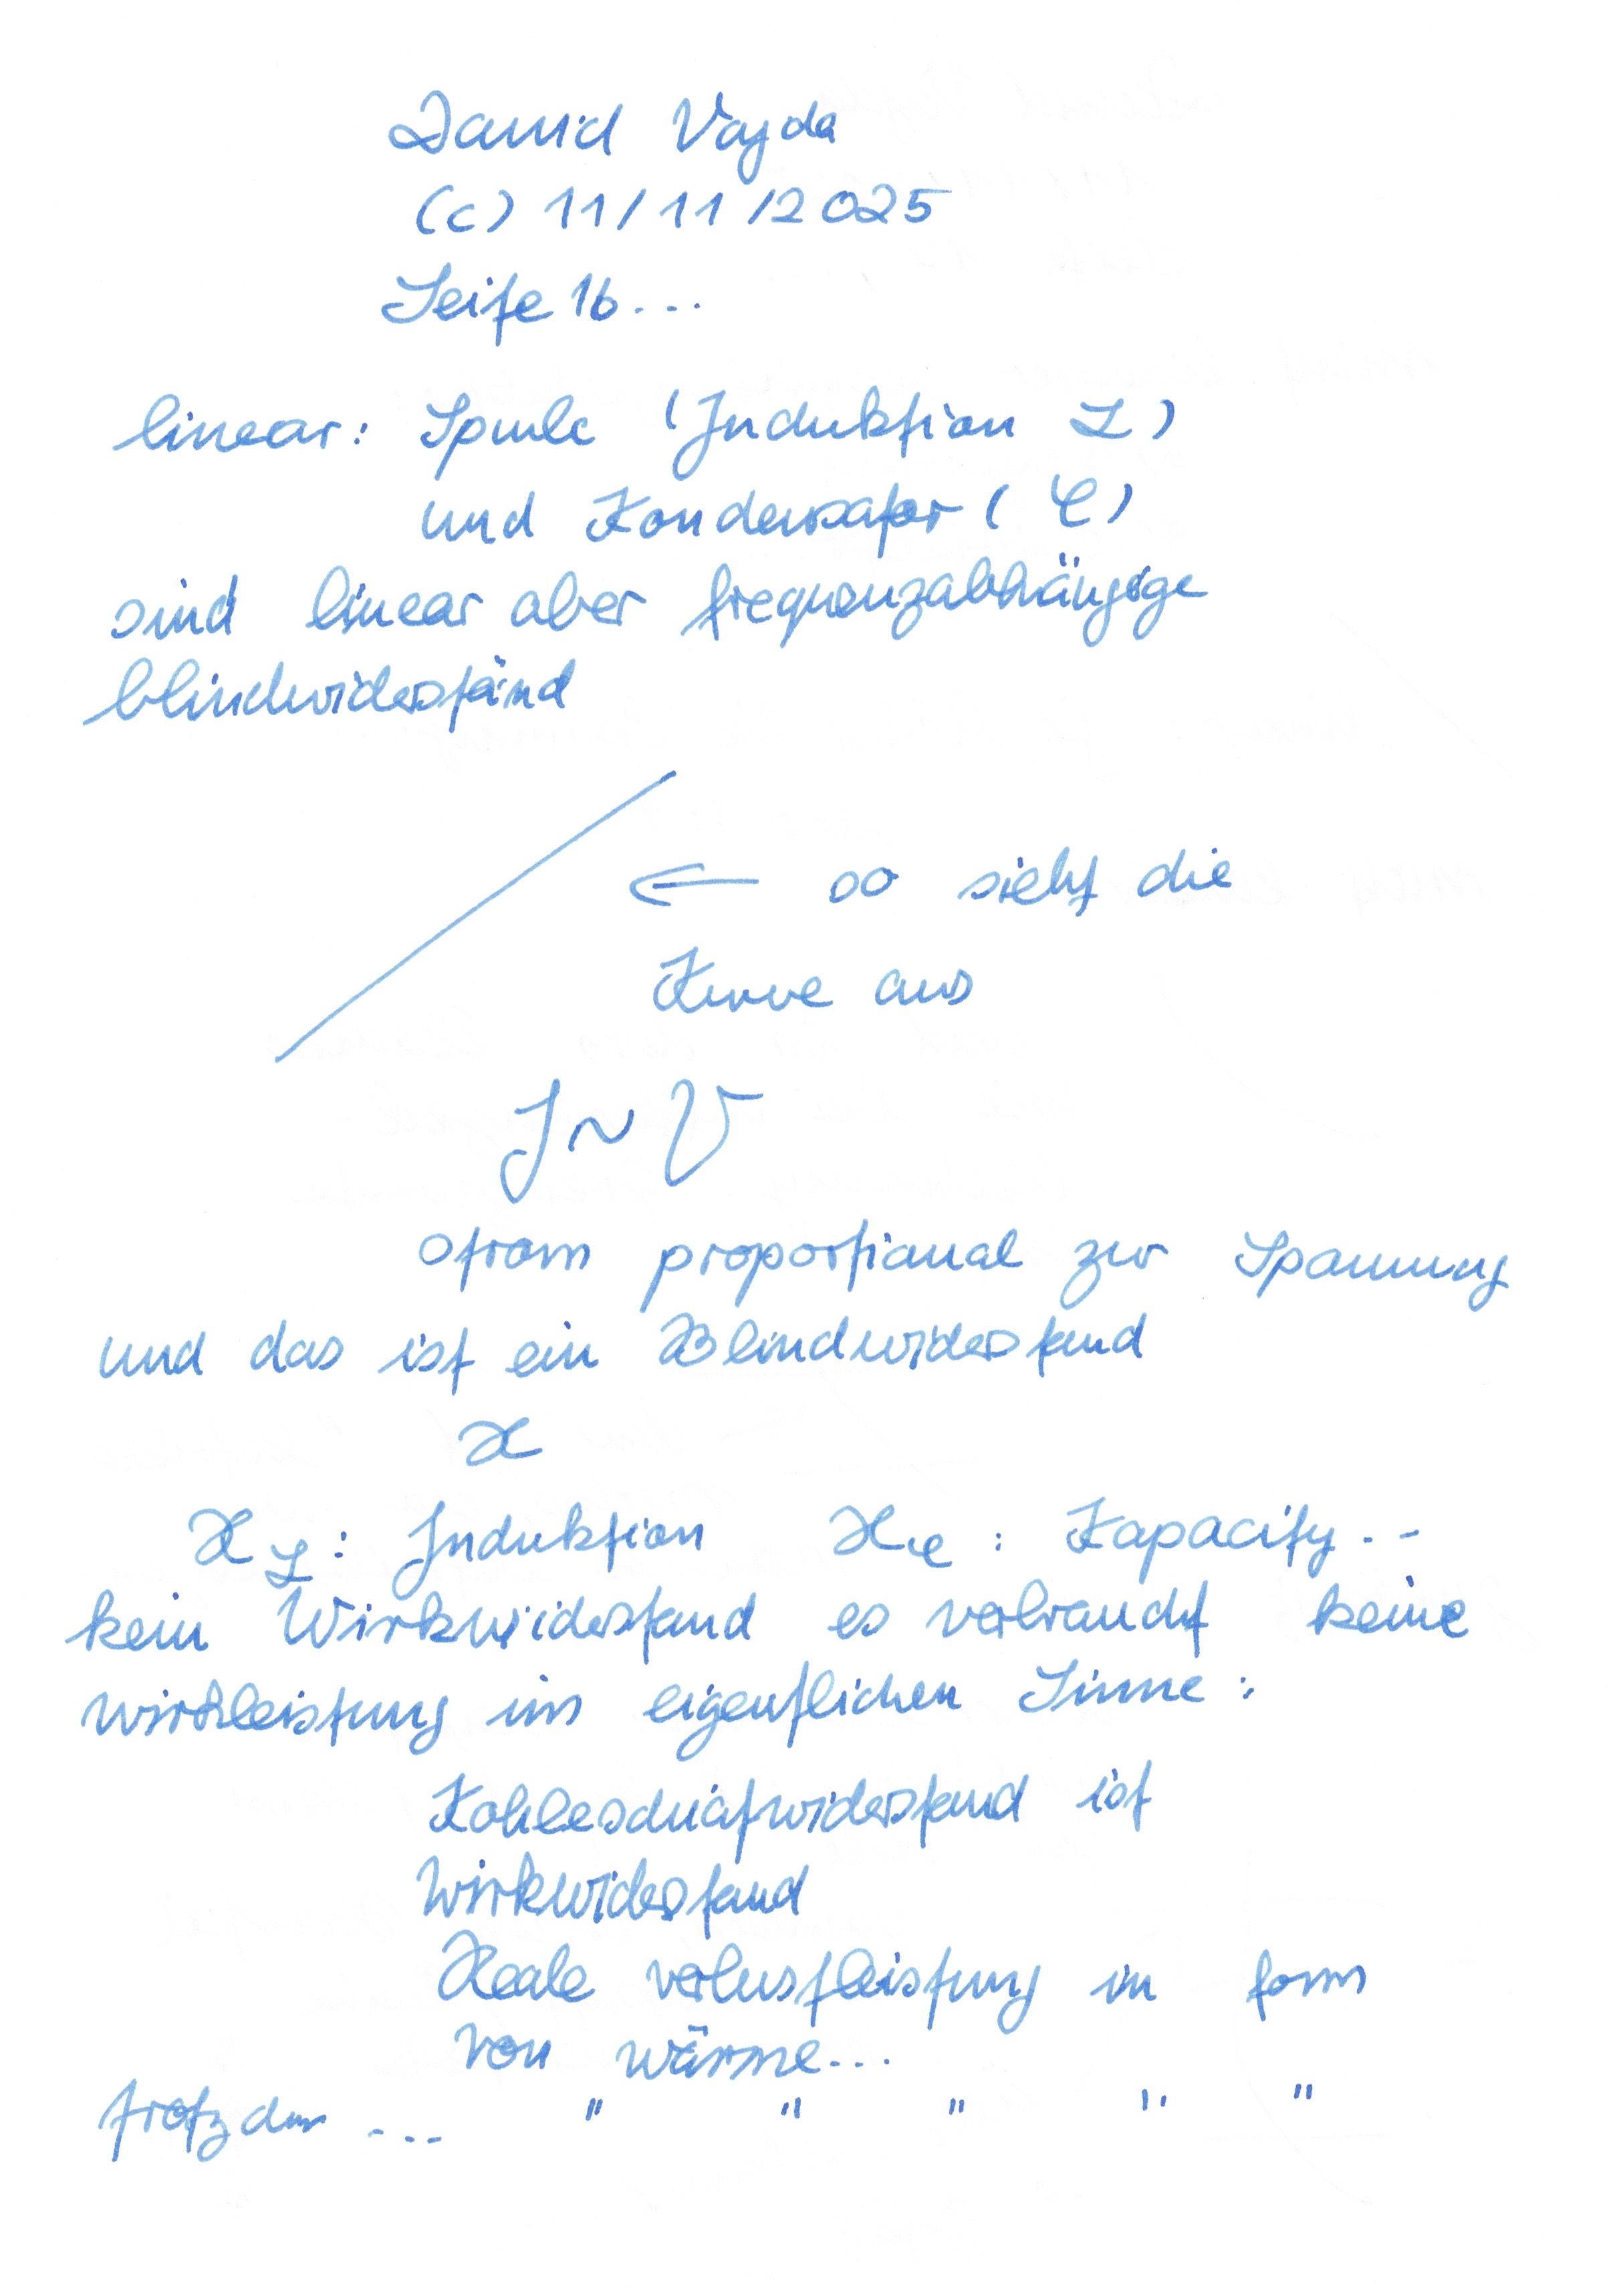 David Vajda
(C) 11/11/2025
Seite 16...
linear: Spule (Induktion L)
und Kondensator (C)
sind linear aber frequenzabhängige
blindwiderständ
← so sieht die
Kurve aus
I ~ U
strom proportional zur Spannung
und das ist ein Blindwiderstand
X
X_L: Induktion X_C: Kapacity..
kein Wirkwiderstand es verbraucht keine
wirkleistung im eigentlichen Sinne:
Kohleschichtwiderstand ist
Wirkwiderstand
Reale verlustleistung in form
von wärme...
trotzdem ... " " " " "